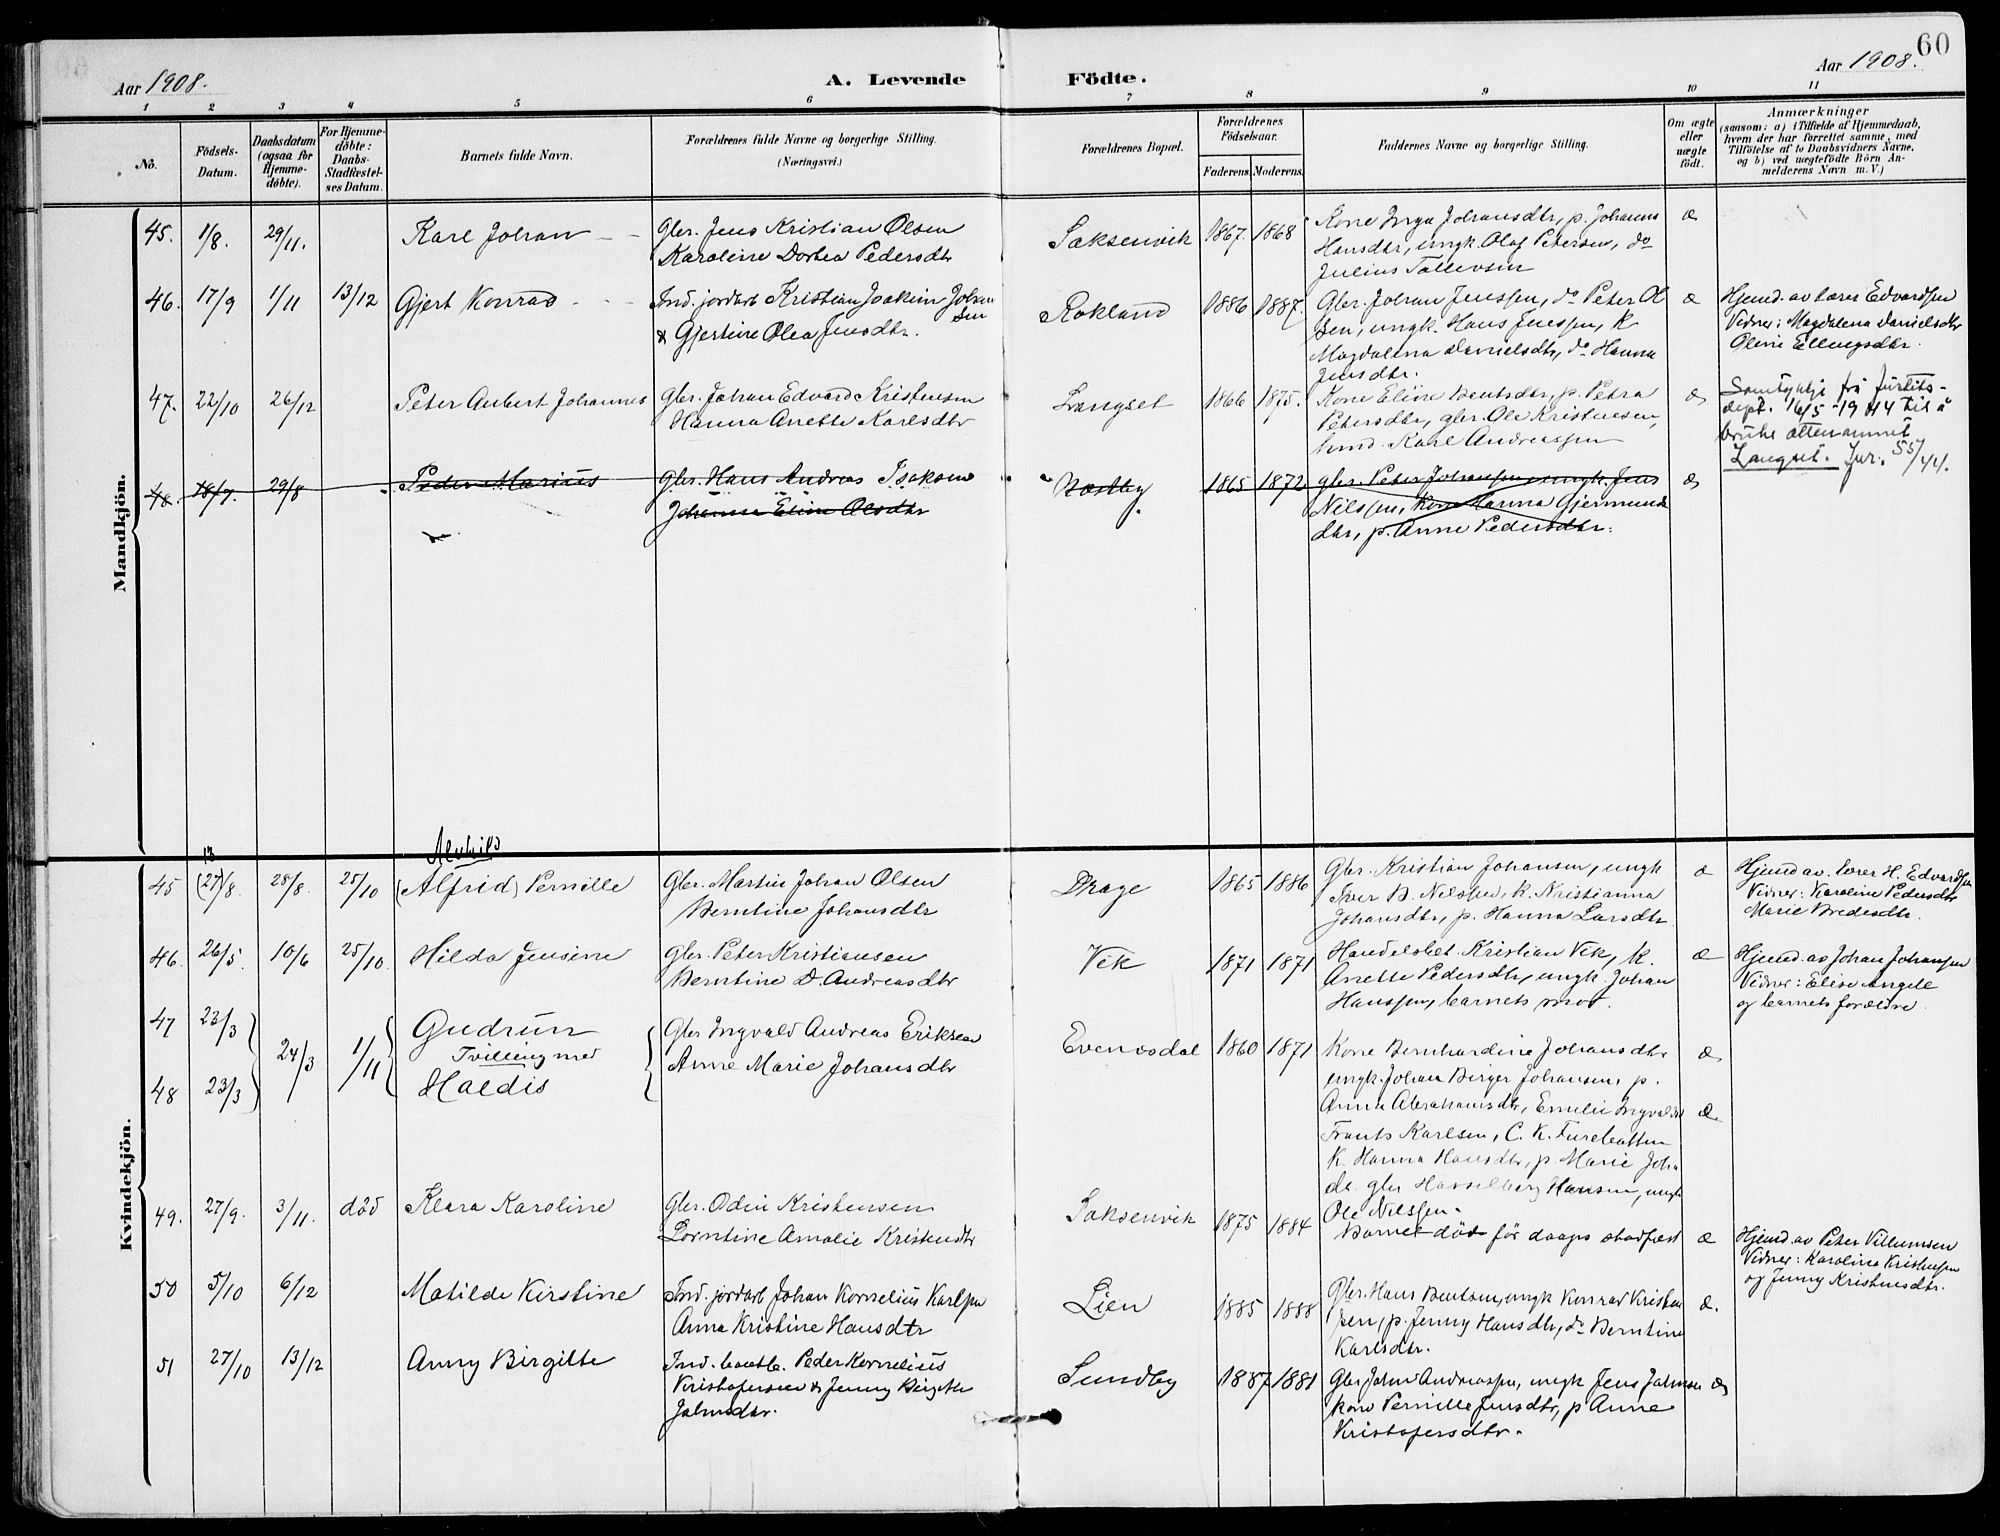 60
Aar 1908.
A. Levende
Födte.
Aar 1908.
1 2 3 4 5 6 7 8 9 10 11
No.
Födsels-
Datum.
Daabsdatum
(ogsaa for
Hjemme-
döbte).
For Hjemme-
döbte:
Daabs-
Stadfæstel-
ses Datum.
Barnets fulde Navn.
Forældrenes fulde Navne og borgerlige Stilling.
(Næringsvei.)
Forældrenes Bopæl.
Forældrenes
Födselsaar.
Faderens. Moderens.
Faddernes Navne og borgerlige Stilling.
Om ægte
eller
uægte
födt.
Anmærkninger
(saasom: a) i Tilfælde af Hjemmedaab,
hvem der har forrettet samme, med
Tilföielse af to Daabsvidners Navne,
og b) ved uægtefödte Börn An-
melderens Navn m. V.)
Mandkjön.
45. 1/8. 29/11. Karl Johan
Gbr. Jens Kristian Olsen
Karoline Dortea Pedersdtr
Saksenvik 1867. 1868
Kone Inga Johansdtr, p. Johanna
Hansdtr, ungk. Olaf Petersen, do
Julius Tollevsen
æ
46. 17/9 1/11 13/12 Gjert Konrad
Ind. jordarb Kristian Joakim Johan
sen
& Gjertine Olea Jensdtr.
Rokland 1886 1887.
Gbr. Johan Jenssen, do Peter Ol
sen, ungk. Hans Jenssen, K
Magdalena Danielsdtr, do Hanna
Jensdtr.
æ
Hjemd. av Lærer Edvardsen
Vidner: Magdalena Danielsdtr
Oline Ellingsdtr.
47. 22/10 26/12 Peter Aubert Johannes
Gbr. Johan Edvard Kristensen
Hanna Anette Karlsdtr
Langset 1866 1875.
Kone Eline Bentsdtr, p. Petra
Petersdtr, gbr. Ole Kristensen,
Karl Andreassen
æ
Samtykkje frå Justits-
dept. 16/5 - 1944 til å
bruke ættenamnet
Langset. Jur. 55/44.
48. 18/7. 29/8 Peder Marius
Gbr. Hans Andreas Isaksen
Johanna Eline Olsdtr
Næstby 1865 1872
gbr. Peter Johansen, ungk. Jens
Nilssen, Kone Hanna Gjermunds
dtr, p. Anne Pedersdtr.
æ
Kvindekjön.
Alvhild
45 (27)/8 28/8. 25/10 (Alfrid) Pernille
Gbr. Martin Johan Olsen
Berntine Johansdtr
Drage 1865 1886
Gbr. Kristian Johansen, ungk
Iver B. Nilssen, K. Kristianna
Johansdtr, p. Hanna Larsdtr
æ
Hjemd av. lærer H. Edvardsen
Vidner: Karoline Pedersdtr
Marie Bredesdtr.
46. 26/5. 10/6 25/10. Hilda Jensine
Gbr. Peter Kristiansen
Berntine D. Andreasdtr
Vik 1871 1871
Handelsbet. Kristian Vik, K.
Anette Pedersdtr, ungk. Johan
Hanssen, barnets mor.
æ
Hjemd. av Johan Johansen
Vidner: Elise Angell
og barnets forældre.
47 23/3 24/3 1/11 Gudrun
Tvilling med
48 23/3 Haldis
Gbr Ingvald Andreas Eriksen
Anne Marie Johansdtr
Evenesdal 1860 1871
Kone Bernhardine Johansdtr
ungk. Johan Birger Johansen, p.
Anna Abrahamsdtr, Emelie Ingvalds
Frants Karlsen, C. K.
K. Hanna Hansdtr, p. Marie Joha
dr. gbr Hasselberg Hansen, ungk
Ole Nilssen.
æ
æ
49. 27/9. 3/11. död Klara Karoline
Gbr. Odin Kristensen
Berntine Amalie Kristensdtr
Saksenvik 1875 1884
Barnet död för daaps stadfæst
æ
Hjemd. av Peter Villumsen
Vidner: Karoline Kristensen
og Jenny Kristensdtr.
50 5/10 6/12 Matilde Kirstine
Ind. jordarb Johan Kornelius Karlsen
Anna Kristine Hansdtr
Lien 1885 1888
Gbr. Hans Bentsen, ungk Konrad Kristian
sen, p. Jenny Hansdtr, do Berntine
Karlsdtr.
æ.
51 27/10 13/12 Anny Birgitte
Ind. Peder Kornelius
Kristofersen & Jenny Birgitte
Johnsdtr.
Sundby 1887 1881
Gbr John Andreassen, ungk Jens Johnsen
kone Pernille Jensdtr, p Anne
Kristofersdtr.
æ